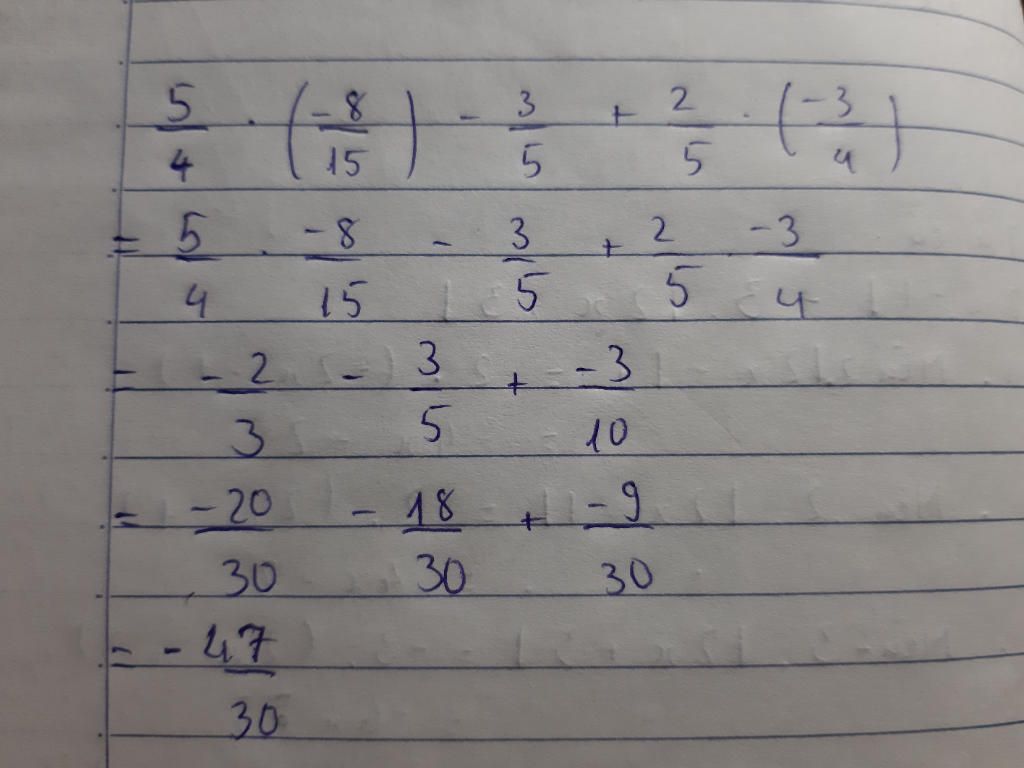 5/4 . (-8/15) - 3/5 + 2/5 . (-3/4)
= 5/4 . -8/15 - 3/5 + 2/5 . -3/4
= -2/3 - 3/5 + -3/10
= -20/30 - 18/30 + -9/30
= -47/30